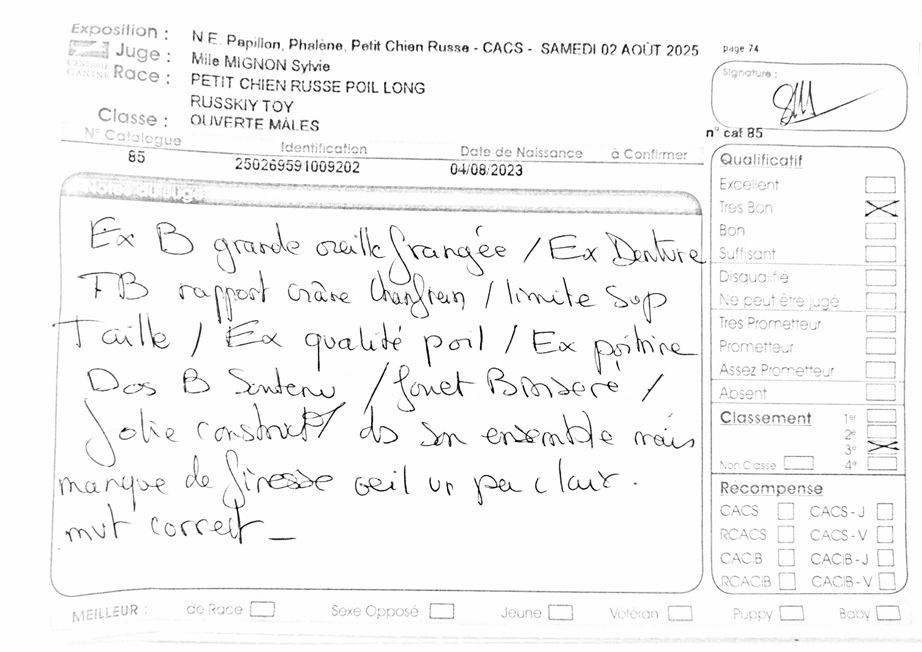 Exposition : N.E. Papillon, Phalène, Petit Chien Russe - CACS - SAMEDI 02 AOÛT 2025
page 74
Juge : Mlle MIGNON Sylvie
CENTRALE CANINE
Race : PETIT CHIEN RUSSE POIL LONG
RUSSKIY TOY
Classe : OUVERTE MÂLES
Signature :
n° cat 85
N° Catalogue Identification Date de Naissance à Confirmer
85 250269591009202 04/08/2023
Notes du Juge
Ex B grande oreille frangée / Ex Denture
TB rapport crâne chanfrein / limite Sup
Taille / Ex qualité poil / Ex poitrine
Dos B Soutenu / fouet B inséré /
Jolie construct° / ds son ensemble mais
manque de finesse oeil un peu clair.
mvt correct _
Qualificatif
Excellent
Tres Bon
Bon
Suffisant
Disqualifié
Ne peut être jugé
Tres Prometteur
Prometteur
Assez Prometteur
Absent
Classement 1er
2e
3e
Non Classe 4e
Recompense
CACS CACS-J
RCACS CACS-V
CACIB CACIB-J
RCACIB CACIB-V
MEILLEUR : de Race Sexe Opposé Jeune Vétéran Puppy Baby